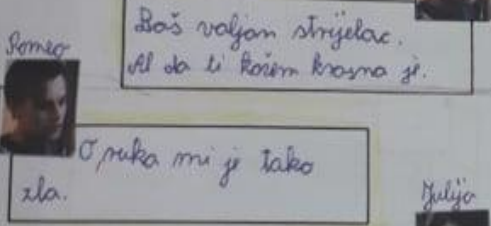 Baš valjan strijelac.
Al da ti kažem krasna je.
Romeo
O, ruka mi je tako
zla.
Julija